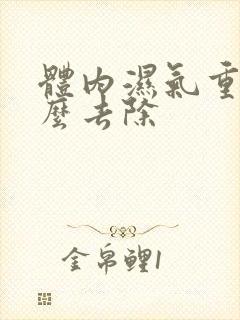 體內濕氣重
麽去除
金帛鯉1